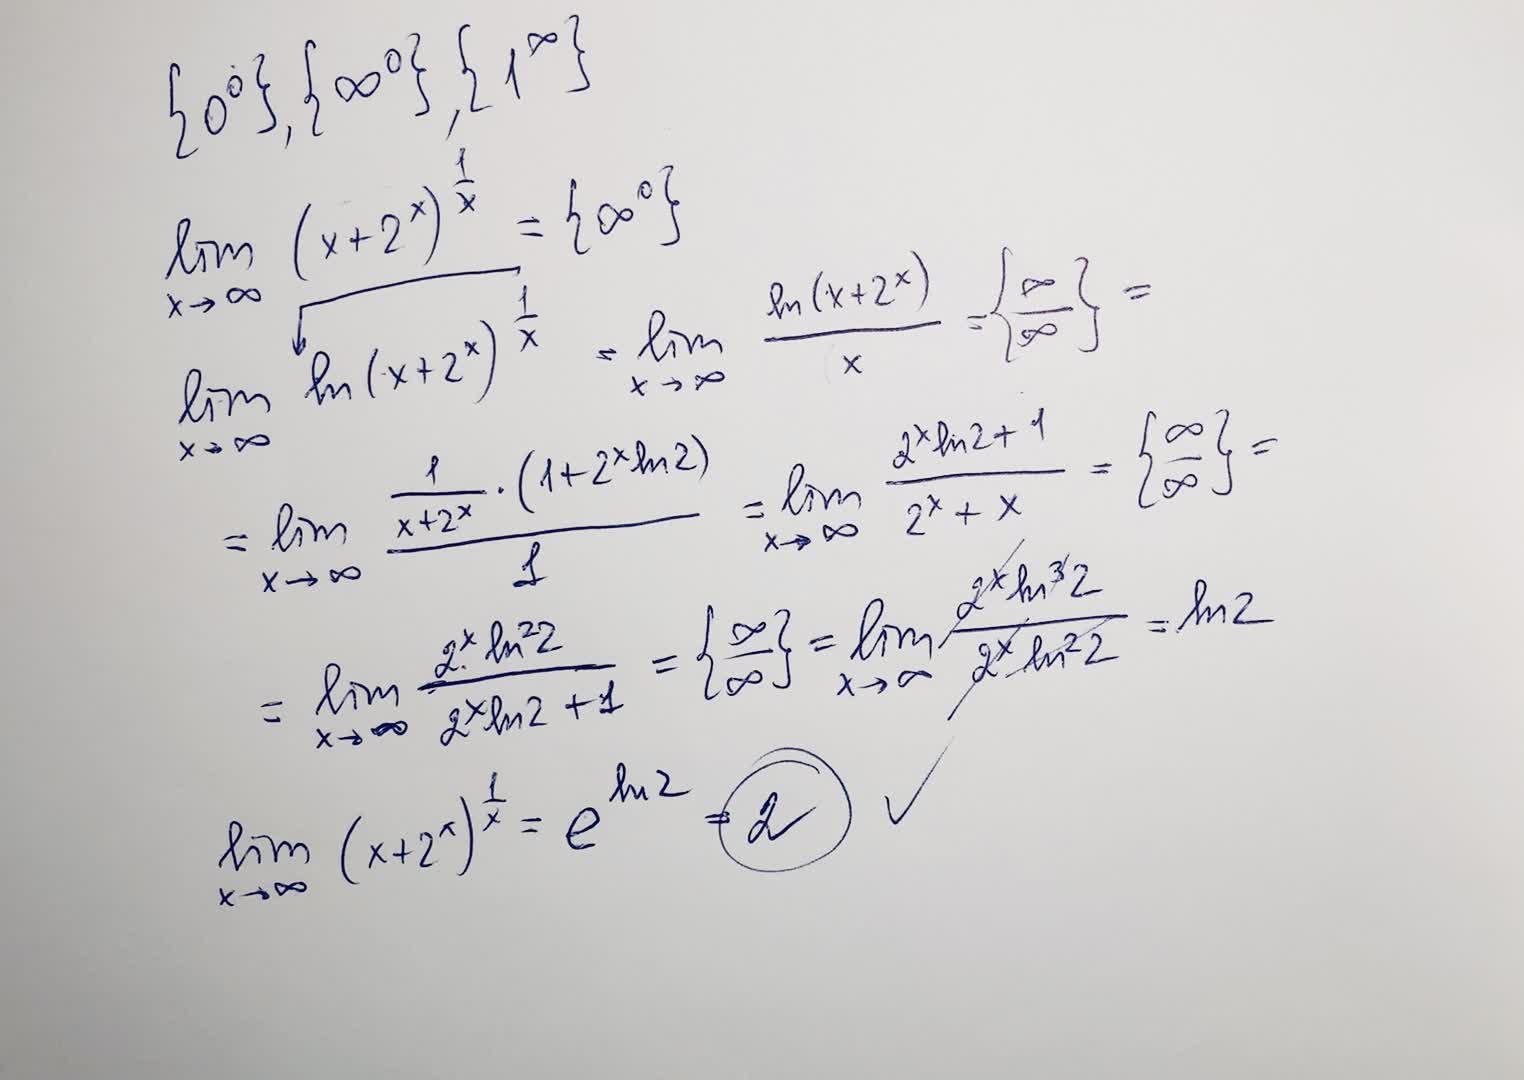 {0⁰}, {∞⁰}, {1^∞}
lim_{x→∞} (x+2^x)^{1/x} = {∞⁰}
lim_{x→∞} ln(x+2^x)^{1/x} = lim_{x→∞} ln(x+2^x)/x = {∞/∞} =
= lim_{x→∞} (1/(x+2^x) · (1+2^x ln2))/1 = lim_{x→∞} (2^x ln2+1)/(2^x + x) = {∞/∞} =
= lim_{x→∞} (2^x ln²2)/(2^x ln2 + 1) = {∞/∞} = lim_{x→∞} (2^x ln³2)/(2^x ln²2) = ln2
lim_{x→∞} (x+2^x)^{1/x} = e^{ln2} = 2 ✓